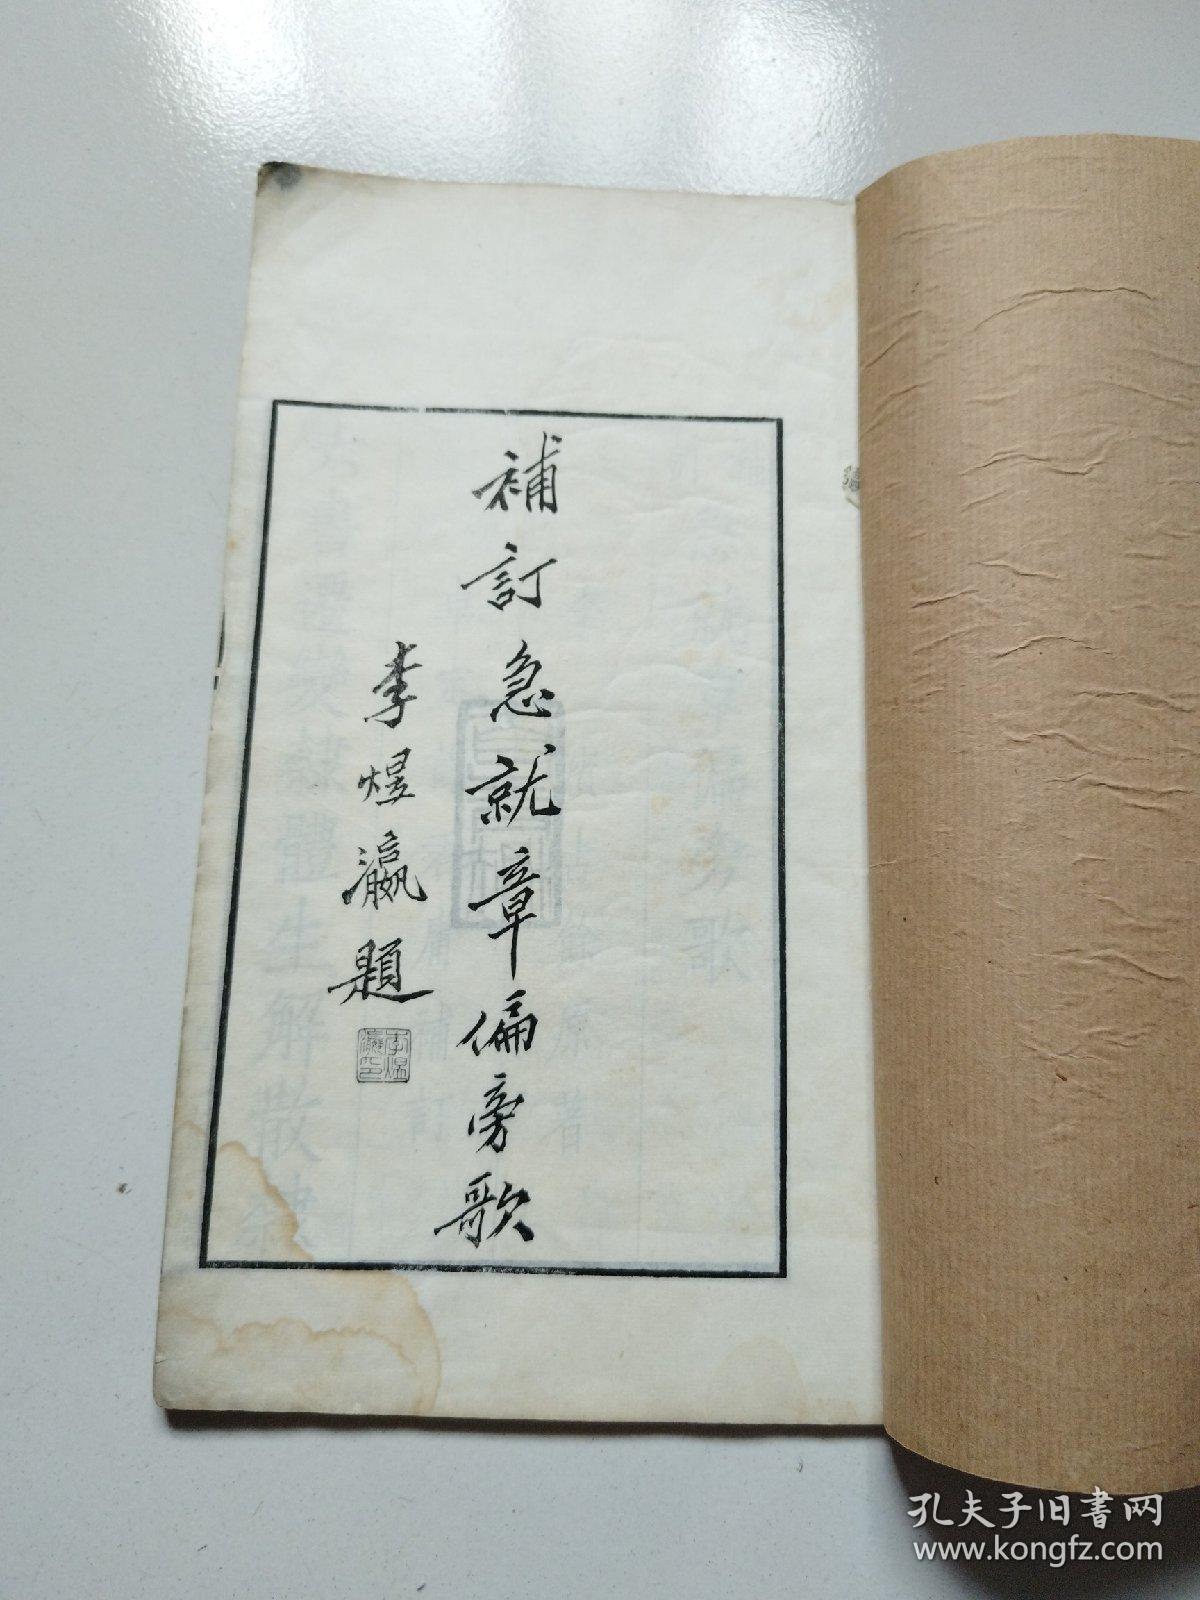 補訂急就章偏旁歌
李煜瀛題
李煜瀛印
孔夫子旧书网
www.kongfz.com